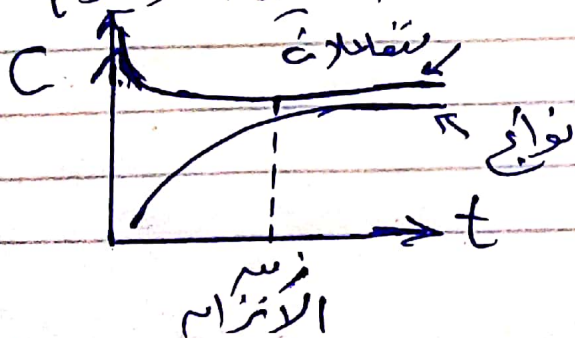 C
متفاعلات
نواتج
t
زمن
الاتزان